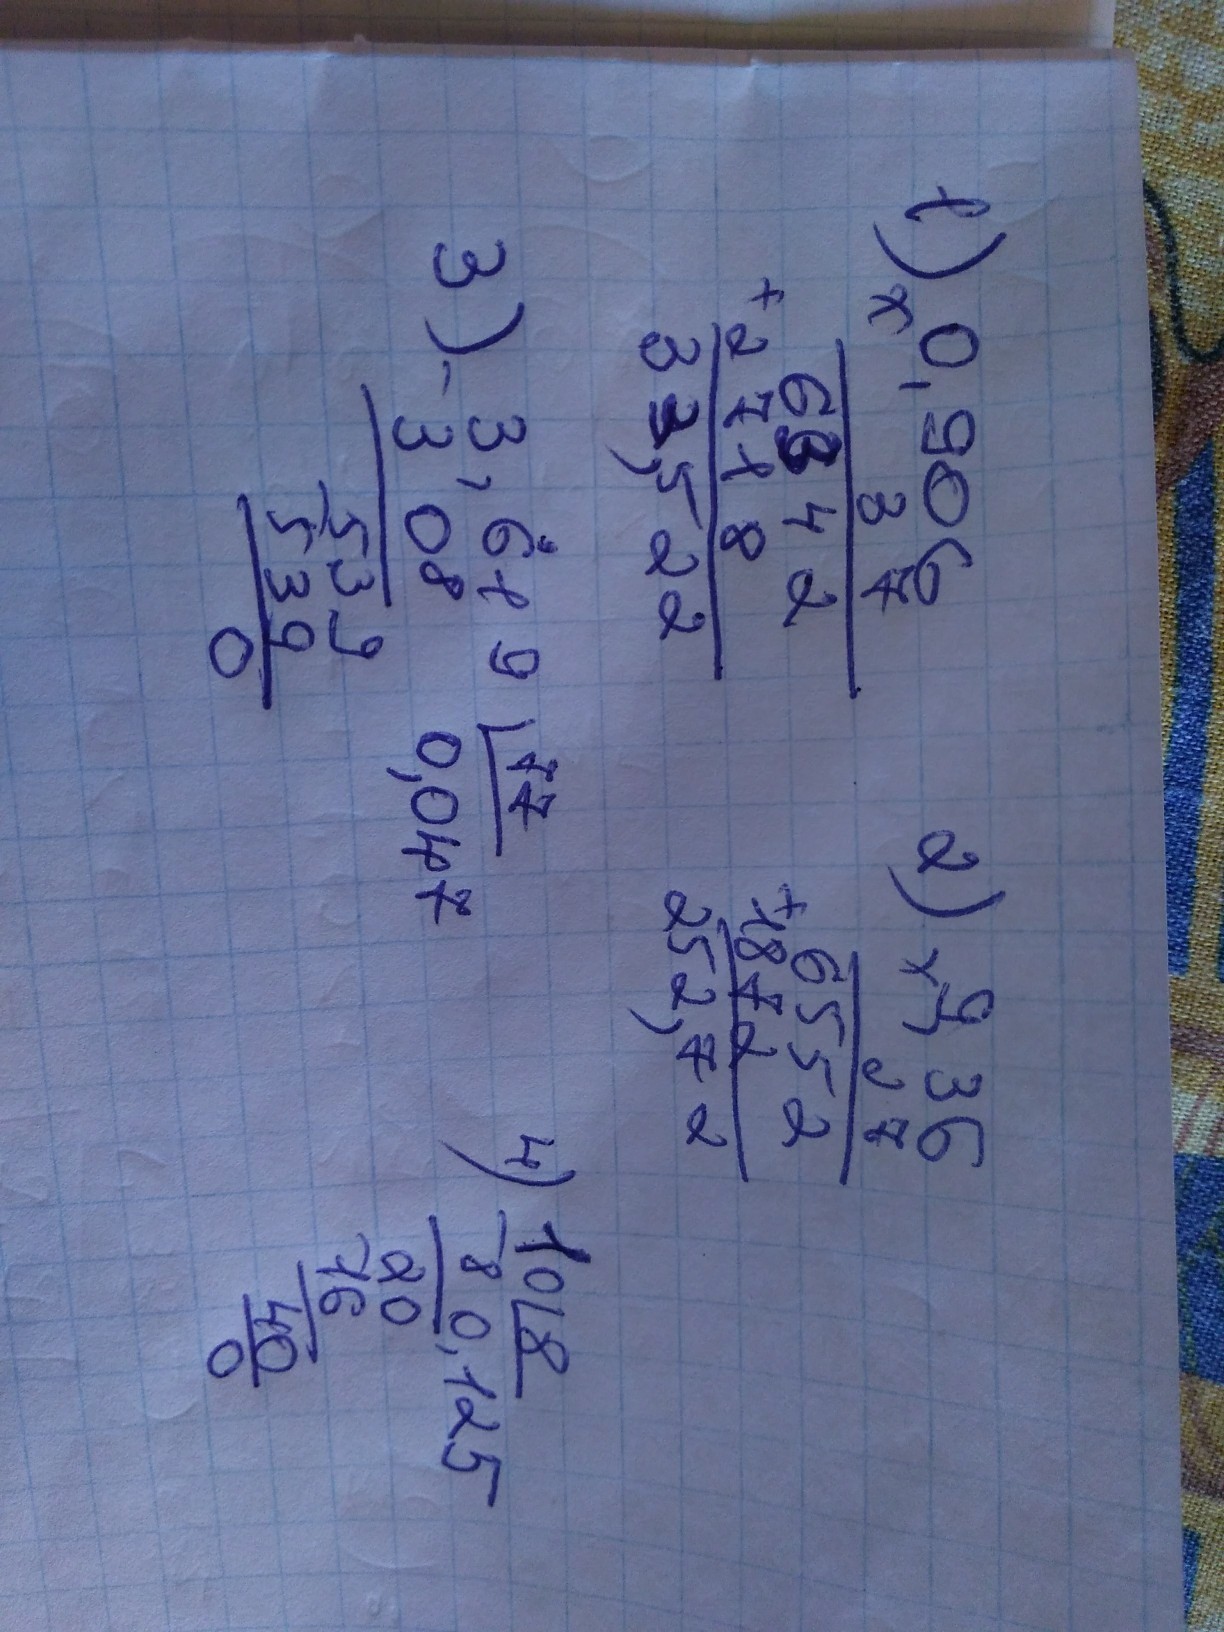 1) x 0,906
37
6342
+ 2718
33,522
2) x 9,36
27
6552
+ 1872
252,72
3) - 3,619 | 77
3 08 0,047
539
539
0
4) 10 | 8
- 8 0,125
20
16
40
0